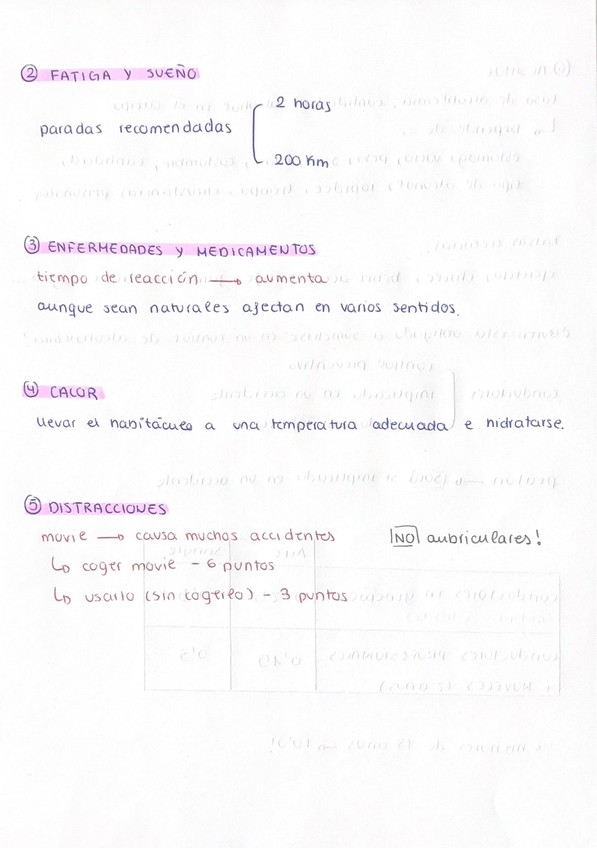 ② FATIGA Y SUEÑO
2 horas
paradas recomendadas
200 Km
③ ENFERMEDADES Y MEDICAMENTOS
tiempo de reacción → aumenta
aunque sean naturales afectan en varios sentidos.
④ CALOR
llevar el habitáculo a una temperatura adecuada e hidratarse.
⑤ DISTRACCIONES
movil → causa muchos accidentes NO aubriculares!
↳ coger movil - 6 puntos
↳ usarlo (sin cogerlo) - 3 puntos